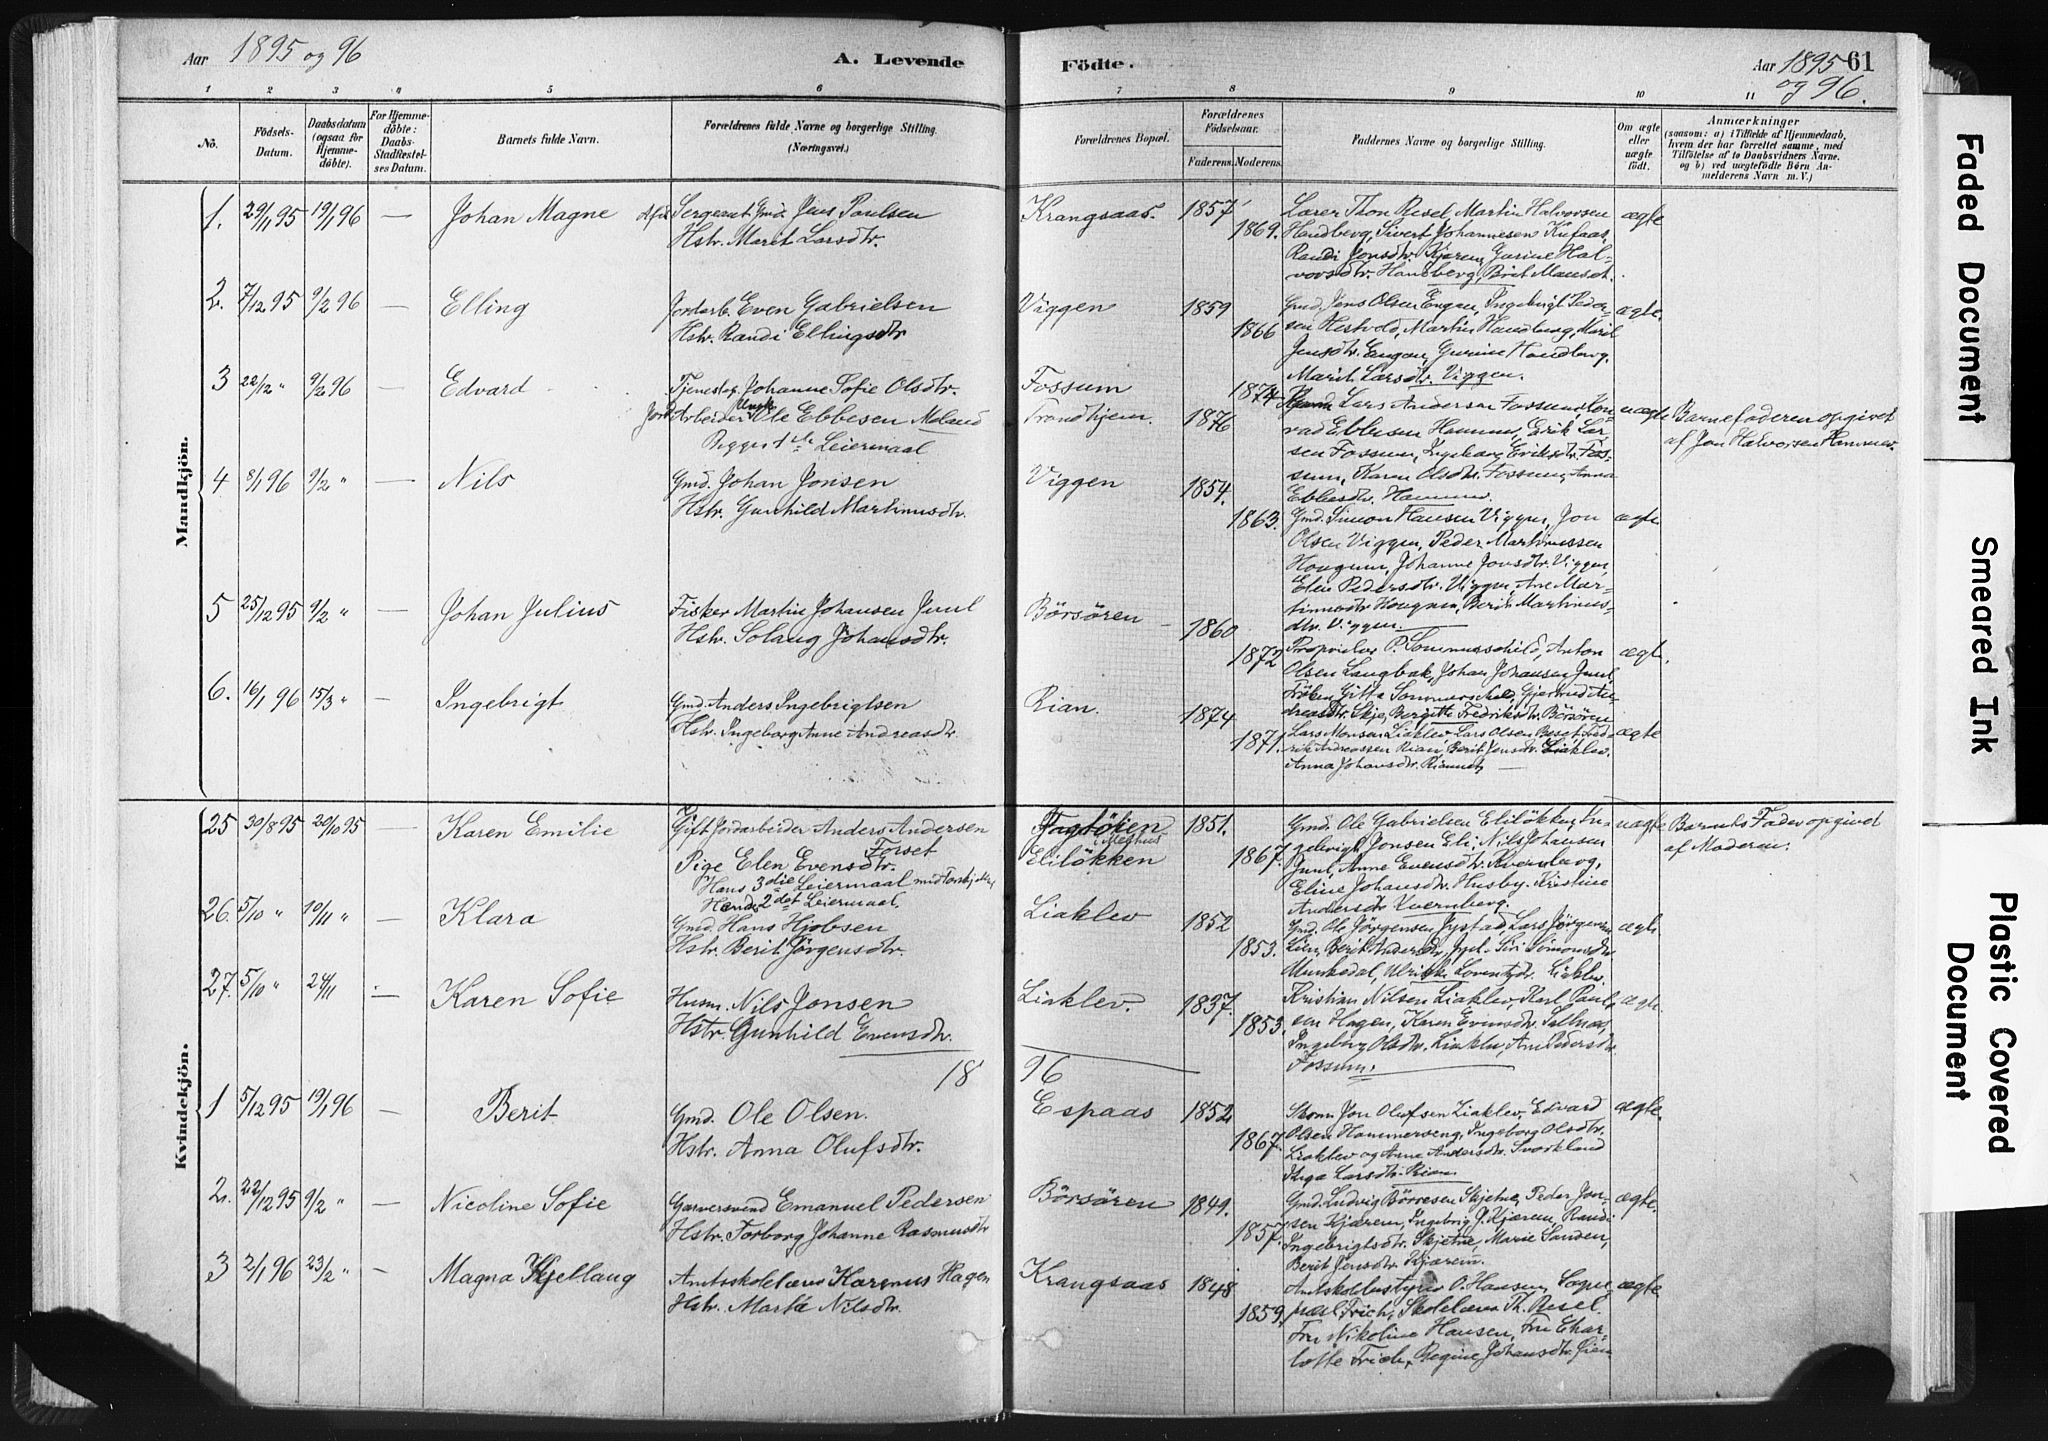 Aar 1895 og 96
A. Levende
Födte.
Aar 1895 og 96.
61
1 2 3 4 5 6 7 8 9 10 11
No.
Födsels-Datum.
Daabsdatum (ogsaa for Hjemme-döbte).
For Hjemme-döbte: Daabs-Stadfæstel-ses Datum.
Barnets fulde Navn.
Forældrenes fulde Navne og borgerlige Stilling. (Næringsvei.)
Forældrenes Bopæl.
Forældrenes Födselsaar.
Faderens. Moderens.
Faddernes Navne og borgerlige Stilling.
Om ægte eller uægte födt.
Anmærkninger
(saasom: a) i Tilfælde af Hjemmedaab, hvem der har forrettet samme, med Tilföielse af to Daabsvidners Navne. og b) ved uægtefödte Börn An-melderens Navn m. V.)
Mandkjön.
1. 29/11 95 19/1 96 — Johan Magne
Sergeant Gmd. Jens Paulsen
Hstr. Marit Larsdtr.
Krangsaas. 1857 1869.
Lærer Thon Resel, Martin Halvorsen
Handberg, Sivert Johannesen Kufaas,
Randi Jonsdtr. Kjæren, Gurine Hal-
vorsdtr. Handberg, Brit Manset.
ægte
2. 7/12 95 9/2 96 — Elling
Jordarb. Even Gabrielsen
Hstr. Randi Ellingsdtr
Viggen 1859 1866
Gmd. Jens Olsen Engan, Ingebrigt Peder-
sen Hestvold, Martin Handberg, Marit
Jensdtr. Engan, Gurine Handberg,
Marit Larsdtr. Viggen.
ægte.
3 22/12 " 9/2 96 Edvard
Tjenestep. Johanne Sofie Olsdtr.
Arbeider Ungk. Ole Ebbesen Meland
Begges 1ste Leiermaal
Fossum 1874
Trondhjem. 1876
Lars Andersen Fossum, Kon-
rad Ebbesen Hammer, Erik Lar-
sen Fossum, Ingeborg Eriksdtr. Fos-
sum, Karen Olsdtr. Fossum, Anna
Ebbesdtr. Hammer.
uægte
Barnefaderen opgivet
af Jon Halvorsen Hammer.
4 8/1 96 9/2 " — Nils
Gmd. Johan Jonsen
Hstr. Gunhild Martinusdtr.
Viggen 1854. 1863.
Gmd. Simon Hansen Viggen, Jon
Olsen Viggen, Peder Martinussen
Hougum, Johanne Jonsdtr. Viggen,
Elen Pedersdtr. Viggen, Ane Mar-
tinusdtr. Hougum, Berit Martinus-
dtr. Viggen.
ægte
5 25/12 95 9/2 " — Johan Julius
Fisker Martin Johansen Juul
Hstr. Solaug Johansdtr.
Börsören 1860 1872
Proprietær P. Sommerschild, Anton
Olsen Langbak, Johan Johansen Juul,
Fröken Gitta Sommerschild, Gjertrud An-
dreasdtr. Skje, Bergitte Fredriksdtr. Börsören
ægte.
6. 16/1 96 15/3 " — Ingebrigt
Gmd. Anders Ingebrigtsen
Hstr. Ingeborg Anne Andreasdtr.
Rian. 1874 1871.
Lars Monsen Liaklev, Lars Olsen Beset, Fred-
rik Andreassen Rian, Berit Jensdtr. Liaklev.
Anna Johansdtr.
ægte
Kvindekjön.
25 30/8 95 20/10 95 — Karen Emilie
Gift Jordarbeider Anders Andersen
Forset
Pige Elen Evensdtr.
Hans 3die Leiermaal
Hendes 2det Leiermaal.
Meghus
Eliløkken 1851. 1867.
Gmd. Ole Gabrielsen Eliløkken, In-
gebrigt Jonsen Eli, Nils Johansen
Juul, Anne Evensdtr. Kvernberg,
Eline Johansdtr. Husby, Kristine
Andersdtr. Kvernberg.
uægte
Barnets Fader opgivet
af Moderen.
26. 5/10 " 10/11 " — Klara
Gmd. Hans Hjobsen
Hstr. Berit Jørgensdtr.
Liaklev 1852 1853.
Gmd. Ole Jørgensen Jystad, Lars Jørgensen
Lien, Berit Andersdtr. Jyst. Siri Simonsdtr
Munkedal, Ulrikke Lorentsdtr. Liaklev.
ægte
27. 5/10 " 24/11 — Karen Sofie
Husm. Nils Jonsen
Hstr. Gunhild Evensdtr.
Liaklev. 1837. 1853.
Kristian Nilsen Liaklev, Karl Paul-
sen Hagen, Karen Evensdtr. Saltnes,
Ingeborg Olsdtr. Liaklev, Ane Pedersdtr
Fossum.
ægte.
18 96
1 5/12 95 19/1 96 — Berit
Gmd. Ole Olsen.
Hstr. Anna Olufsdtr.
Espaas 1852 1867.
Skom. Jon Olufsen Liaklev. Edvard
Olsen Hammerseng, Ingeborg Olsdtr.
Liaklev og Anne Andersdtr. Svorkland
Inga Larsdtr. Rian
ægte.
2. 22/12 95 9/2 " — Nicoline Sofie
Garversvend Emanuel Pedersen
Hstr. Torborg Johanne Rasmusdtr
Börsören 1849. 1857.
Gmd. Ludvig Børresen Skjetne, Peder Jon-
sen Kjærem, Ingebrig J. Kjærem, Randi
Ingebrigtsdtr. Skjetne, Marie Sanden,
Berit Jensdtr. Kjærem.
ægte.
3 2/1 96 23/2 " — Magna Kjellaug
Amtsskolelærer Karenus Hagen
Hstr. Marta Nilsdtr.
Krangsaas 1848 1859.
Amtskolebestyrer O. Hansen, Sogne-
præst Irich, Skolelærer Th. Resel.
Fru Nikoline Hansen, Fru Char-
lotte Irich, Regine Johansdtr. Lien
ægte
Faded Document
Smeared Ink
Plastic Covered
Document